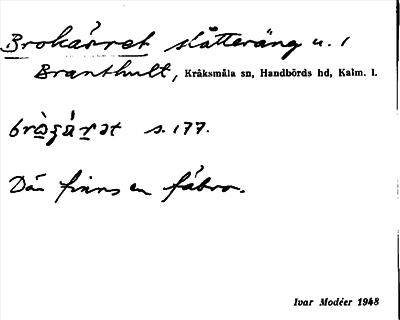 Brokärret slåtteräng u. 1
Branthult, Kråksmåla sn, Handbörds hd, Kalm. l.
s. 177.
Där finns en fäbro.
Ivar Modéer 1948